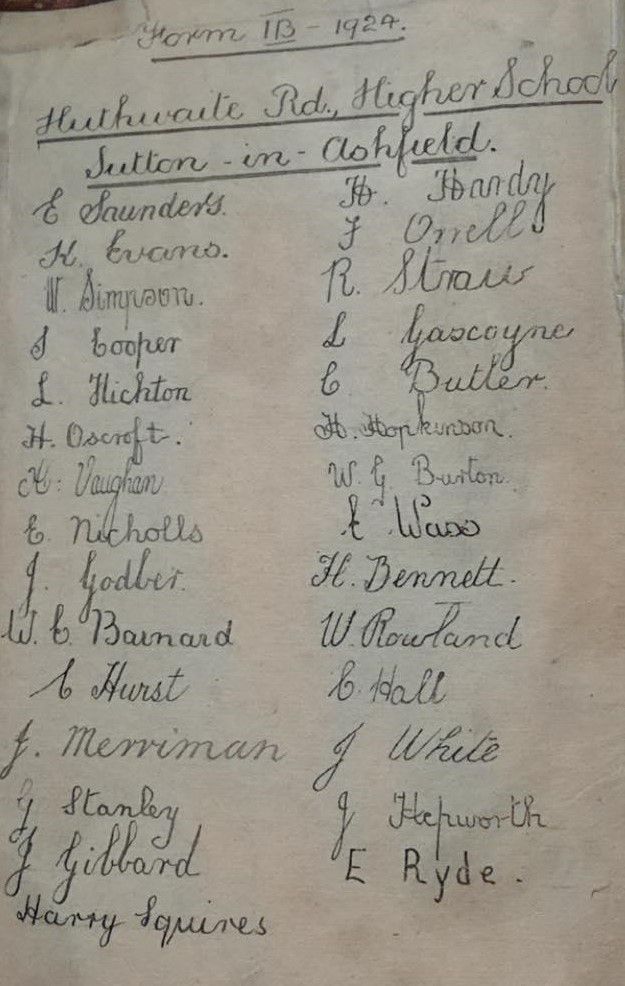 Form IIB - 1924.
Huthwaite Rd., Higher School
Sutton - in - Ashfield.
E Saunders.
K. Evans.
W. Simpson.
S Cooper
L. Hichton
H. Oscroft.
K: Vaughan
E. Nicholls
J. Godber.
W. E. Barnard
C Hurst
J. Merriman
G Stanley
J Gibbard
Harry Squires
H. Handy
F Orrell
R. Straw
L Gascoyne
C Butler.
H. Hopkinson.
W. G. Burton.
E Wass
H. Bennett.
W. Rowland
C. Hall
J White
J Hepworth
E Ryde.